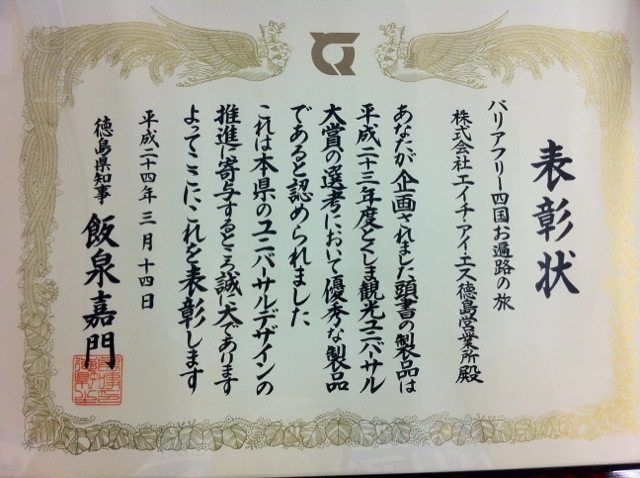 表彰状
バリアフリー四国お遍路の旅
株式会社エイチ・アイ・エス徳島営業所殿
あなたが企画されました頭書の製品は
平成二十三年度とくしま観光ユニバーサル
大賞の選考において優秀な製品
であると認められました
これは本県のユニバーサルデザインの
推進に寄与するところ誠に大であります
よってここにこれを表彰します
平成二十四年三月十四日
徳島県知事 飯泉嘉門